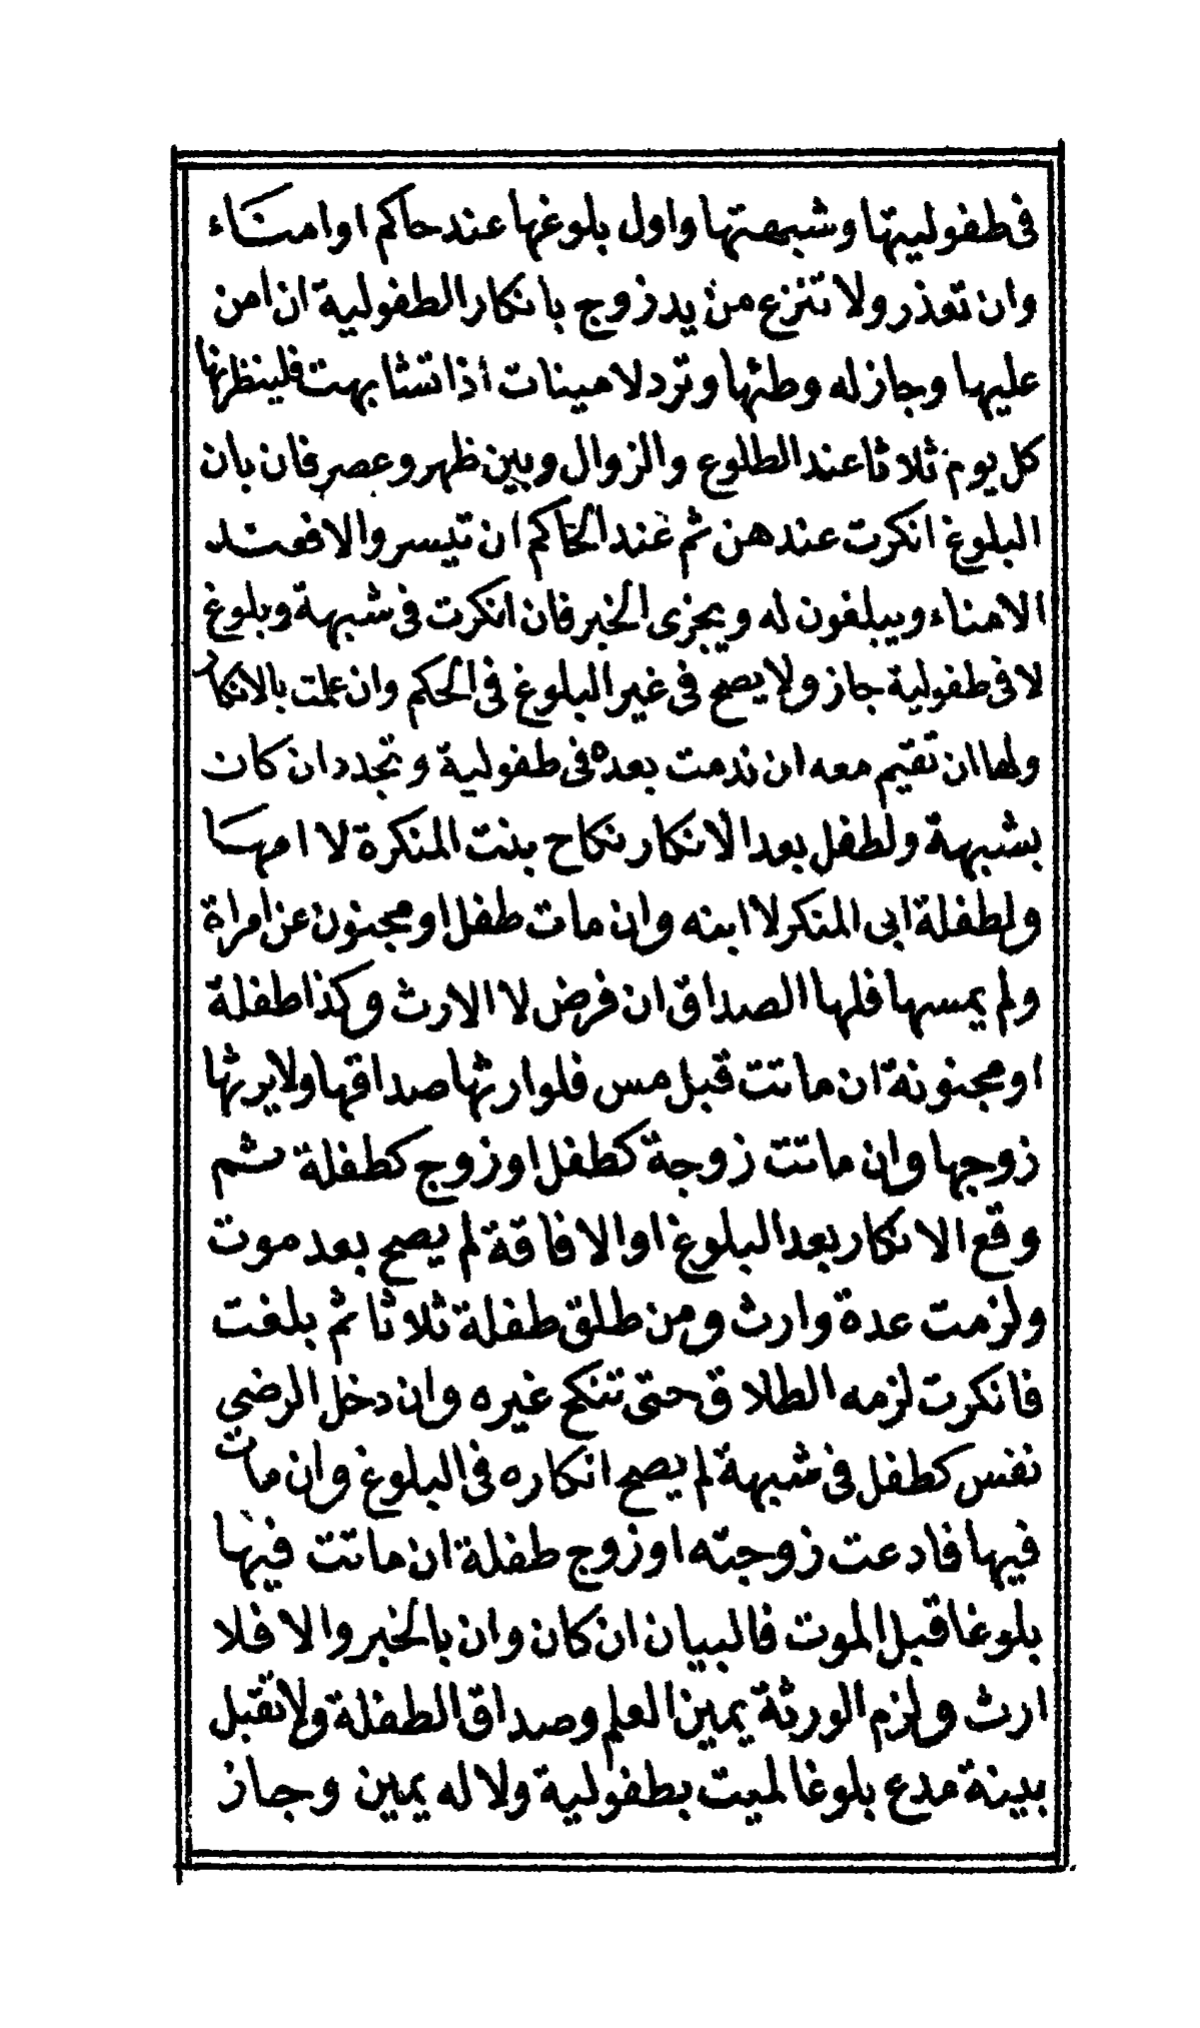 في طفوليتها وشبهتها واول بلوغها عند حاكم او امناء
وان تعذر ولا تنزع من يد زوج بانكار الطفولية ان امن
عليها وجاز له وطئها وترد لامينات اذا تشابهت فلينظرنها
كل يوم ثلاثا عند الطلوع والزوال وبين ظهر وعصر فان بان
البلوغ انكرت عندهن ثم عند الحاكم ان تيسر والا فعند
الامناء ويبلغون له ويجزى الخبر فان انكرت في شبهة وبلوغ
لا في طفولية جاز ولا يصح في غير البلوغ في الحكم وان علمت بالانكار
ولها ان تقيم معه ان ندمت بعده في طفولية وتجدد ان كان
بشبهة ولطفل بعد الانكار نكاح بنت المنكرة لا امها
ولطفلة ابي المنكر لا ابنه وان مات طفل او مجنون عن امراة
ولم يمسها فلها الصداق ان فرض لا الارث وكذا طفلة
او مجنونة ان ماتت قبل مس فلوارثها صداقها ولا يرثها
زوجها وان ماتت زوجة كطفل او زوج كطفلة ثم
وقع الانكار بعد البلوغ او الافاقة لم يصح بعد موت
ولزمت عدة وارث ومن طلق طفلة ثلاثا ثم بلغت
فانكرت لزمه الطلاق حتى تنكح غيره وان دخل الرضي
نفس كطفل في شبهة لم يصح انكاره في البلوغ وان مات
فيها فادعت زوجته او زوج طفلة ان ماتت فيها
بلوغا قبل الموت فالبيان ان كان وان بالخبر والا فلا
ارث ولزم الورثة يمين العلم وصداق الطفلة ولا تقبل
بينة مدع بلوغا لميت بطفولية ولا له يمين وجاز